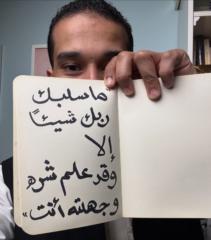 ما سلبك
ربك شيئًا
إلا
وقد علم شره
وجهلته أنت»